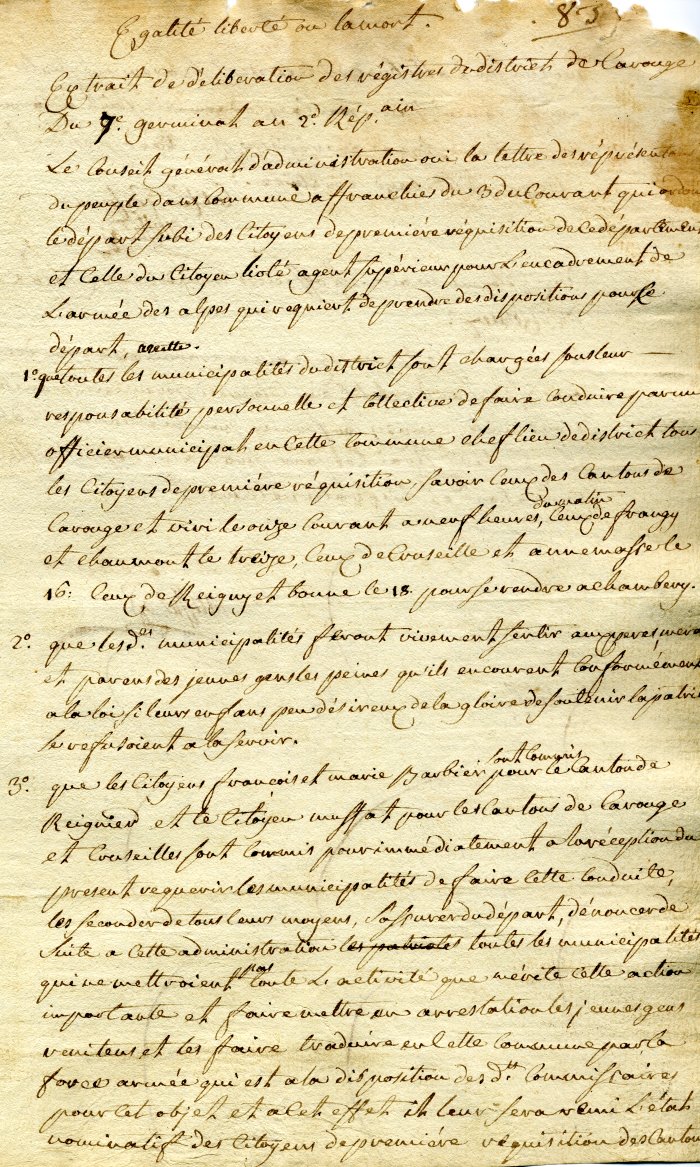 83
Egalité liberté ou la mort.
Extrait de déliberation des régistres du district de Carouge
Du 7e. germinal an 2d. Rép.ain
Le Conseil général d'administration oui la lettre des réprésentans
du peuple dans Commune affranchie du 3 du Courant qui ordonne
le départ subi des Citoyens de premiére réquisition de ce département
et Celle du Citoyen agent supérieur pour L'encadrement de
L'armée des alpes qui requiert de prendre des dispositions pour le
départ, arrette.
1o. que toutes les municipalités du district sont chargées sous leur
responsabilité personnelle et Collective de faire Conduire par un
officier municipal en Cette Commune chef lieu de district tous
les Citoyens de premiére réquisition, savoir Ceux des Cantons de
Carouge et viri le onze Courant a neuf heures du matin, Ceux de frangy
et chaumont le treize, Ceux de Cruseille et annemasse le
16. Ceux de Reigny et bonne le 18 pour se rendre a chambery.
2o. que les d.es municipalités feront vivement sentir aux peres meres
et parens des jeunes gens les peines qu'ils encourent Conformément
a la loi si leurs enfans peu désireux de la gloire de soutenir la patrie
se refusoient a la servir.
3o. que les Citoyens francois et marie Barbier sont Commis pour le Canton de
Reignier et le Citoyen muffat pour les Cantons de Carouge
et Cruseilles sont Commis pour immédiatement a la réception du
present requerir les municipalités de faire Cette Conduite,
les seconder de tous leurs moyens, s'assurer du départ, dénoncer de
suite a Cette administration les toutes les municipalités
qui ne mettroient pas toute L'activité que mérite Cette action
importante et faire mettre en arrestation les jeunes gens
renitens, et les faire traduire en Cette Commune par la
force armée qui est a la disposition des d.ts Commissaires
pour Cet objet et a Cet effet il leur sera remi L'état
nominatif des Citoyens de premiére réquisition des Cantons